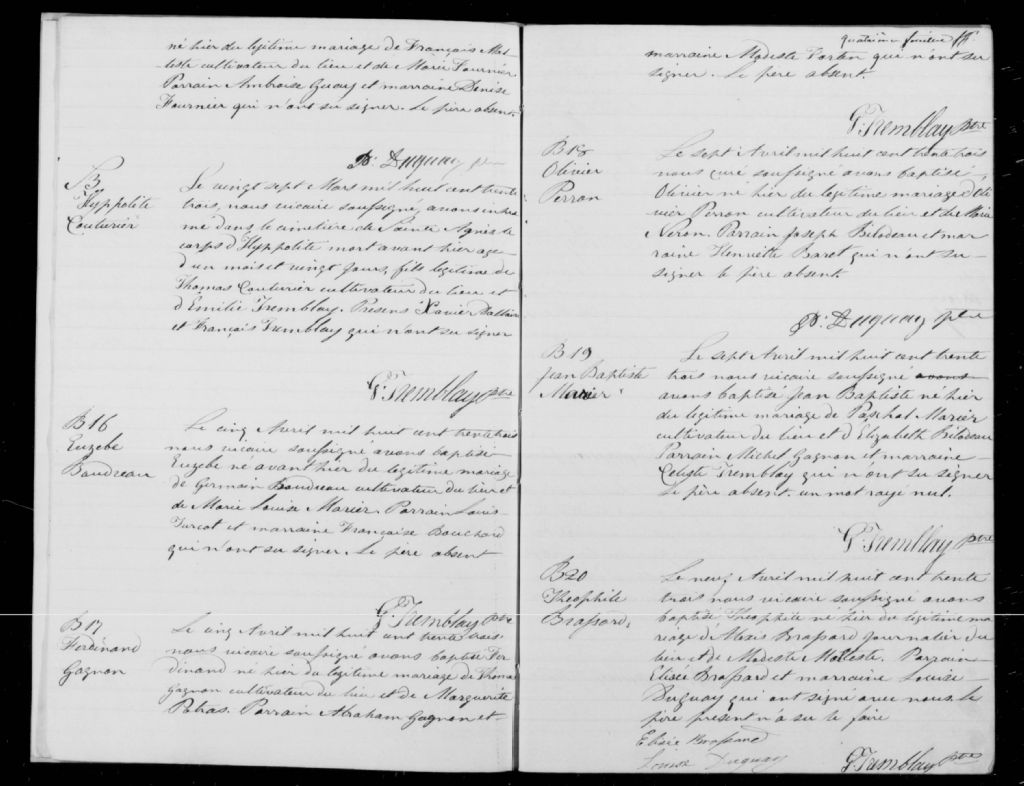 né hier du légitime mariage de François Mal
teste cultivateur du lieu et de Marie Fournier
Parrain Ambroise Guay et marraine Denise
Fournier qui n'ont su signer. Le père absent.
Duguay ptre
S3
Hyppolite
Couturier
Le vingt sept Mars mil huit cent trente
trois, nous vicaire soussigné avons inhu
mé dans le cimetière de Sainte Agnès le
corps d'Hyppolite mort avant hier agé
d'un mois et vingt jours, fils légitime de
Thomas Couturier cultivateur du lieu et
d'Emilie Tremblay. Présens Xavier
et François Tremblay qui n'ont su signer
G. Tremblay ptre
B16
Euzebe
Boudreau
Le cinq Avril mil huit cent trente trois
nous vicaire soussigné avons baptisé
Euzebe né avant hier du légitime mariage
de Germain Boudreau cultivateur du lieu et
de Marie Louise Marier. Parrain Louis
Turcot et marraine Françoise Bouchard
qui n'ont su signer. Le père absent
G. Tremblay ptre
B17
Ferdinand
Gagnon
Le cinq Avril mil huit cent trente trois
nous vicaire soussigné avons baptisé Fer
dinand né hier du légitime mariage de Thomas
Gagnon cultivateur du lieu et de Marguerite
Potras. Parrain Abraham Gagnon et
quatrième feuillet
marraine Modeste Fortin qui n'ont su
signer. Le père absent.
G. Tremblay ptre
B18
Olivier
Perron
Le sept Avril mil huit cent trente trois
nous curé soussigné avons baptisé
Olivier né hier du légitime mariage d'Oli
vier Perron cultivateur du lieu et de Marie
Neron. Parrain Joseph Bilodeau et mar
raine Henriette Baret qui n'ont su
signer le père absent.
Duguay ptre
B19
Jean Baptiste
Marier
Le sept Avril mil huit cent trente
trois nous vicaire soussigné avons
avons baptisé Jean Baptiste né hier
du légitime mariage de Paschal Marier
cultivateur du lieu et d'Elizabeth Bilodeau
Parrain Michel Gagnon et marraine
Celeste Tremblay qui n'ont su signer
Le père absent. un mot rayé nul.
G. Tremblay ptre
B20
Théophile
Brassard.
Le neuf Avril mil huit cent trente
trois nous vicaire soussigné avons
baptisé Théophile né hier du légitime ma
riage d'Alexis Brassard journalier du
lieu et de Modeste Malteste. Parrain
Elisée Brassard et marraine Louise
Duguay qui ont signé avec nous. le
père présent n'a su le faire
Elisée Brassard
Louise Duguay
G. Tremblay ptre